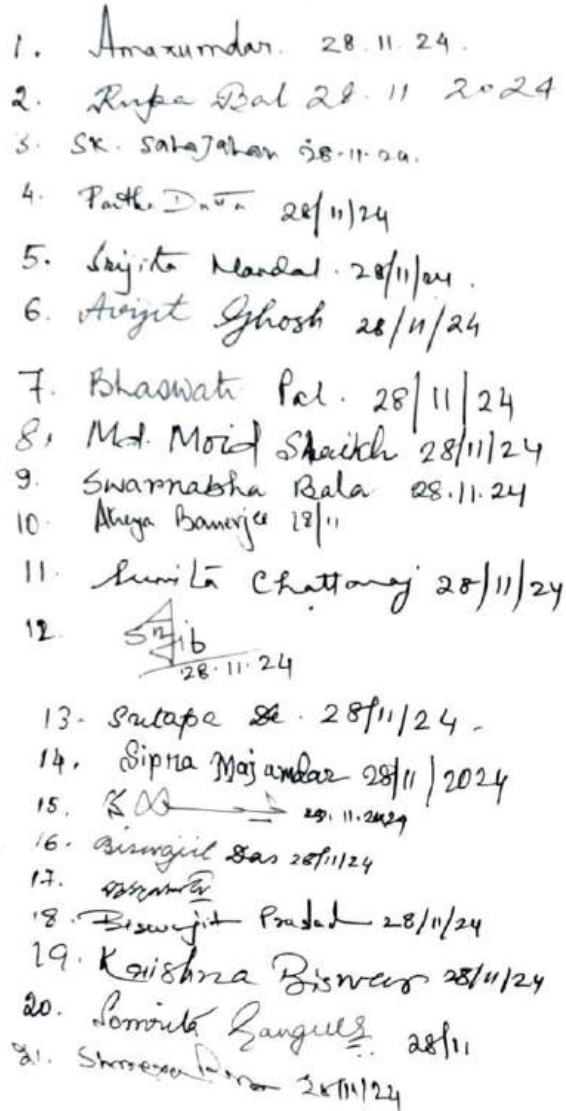 1. Amazumdar. 28.11.24.
2. Rupa Bal 28.11 2024
3. SK. Sahajahan 28.11.24.
4. Partha Dutta 28/11/24
5. Srijita Mandal. 28/11/24.
6. Avijit Ghosh 28/11/24
7. Bhaswati Pal. 28/11/24
8. Md. Moid Shaikh 28/11/24
9. Swarnabha Bala 28.11.24
10. Atreya Banerjee 28/11
11. Sumita Chattaraj 28/11/24
12.
28.11.24
13. Sutapa De. 28/11/24.
14. Sipra Majumdar 28/11/2024
15.
16. Biswajit Das 28/11/24
17.
18. Biswajit Prasad 28/11/24
19. Krishna Biswas 28/11/24
20. Somrita Ganguly 28/11
21. 28/11/24